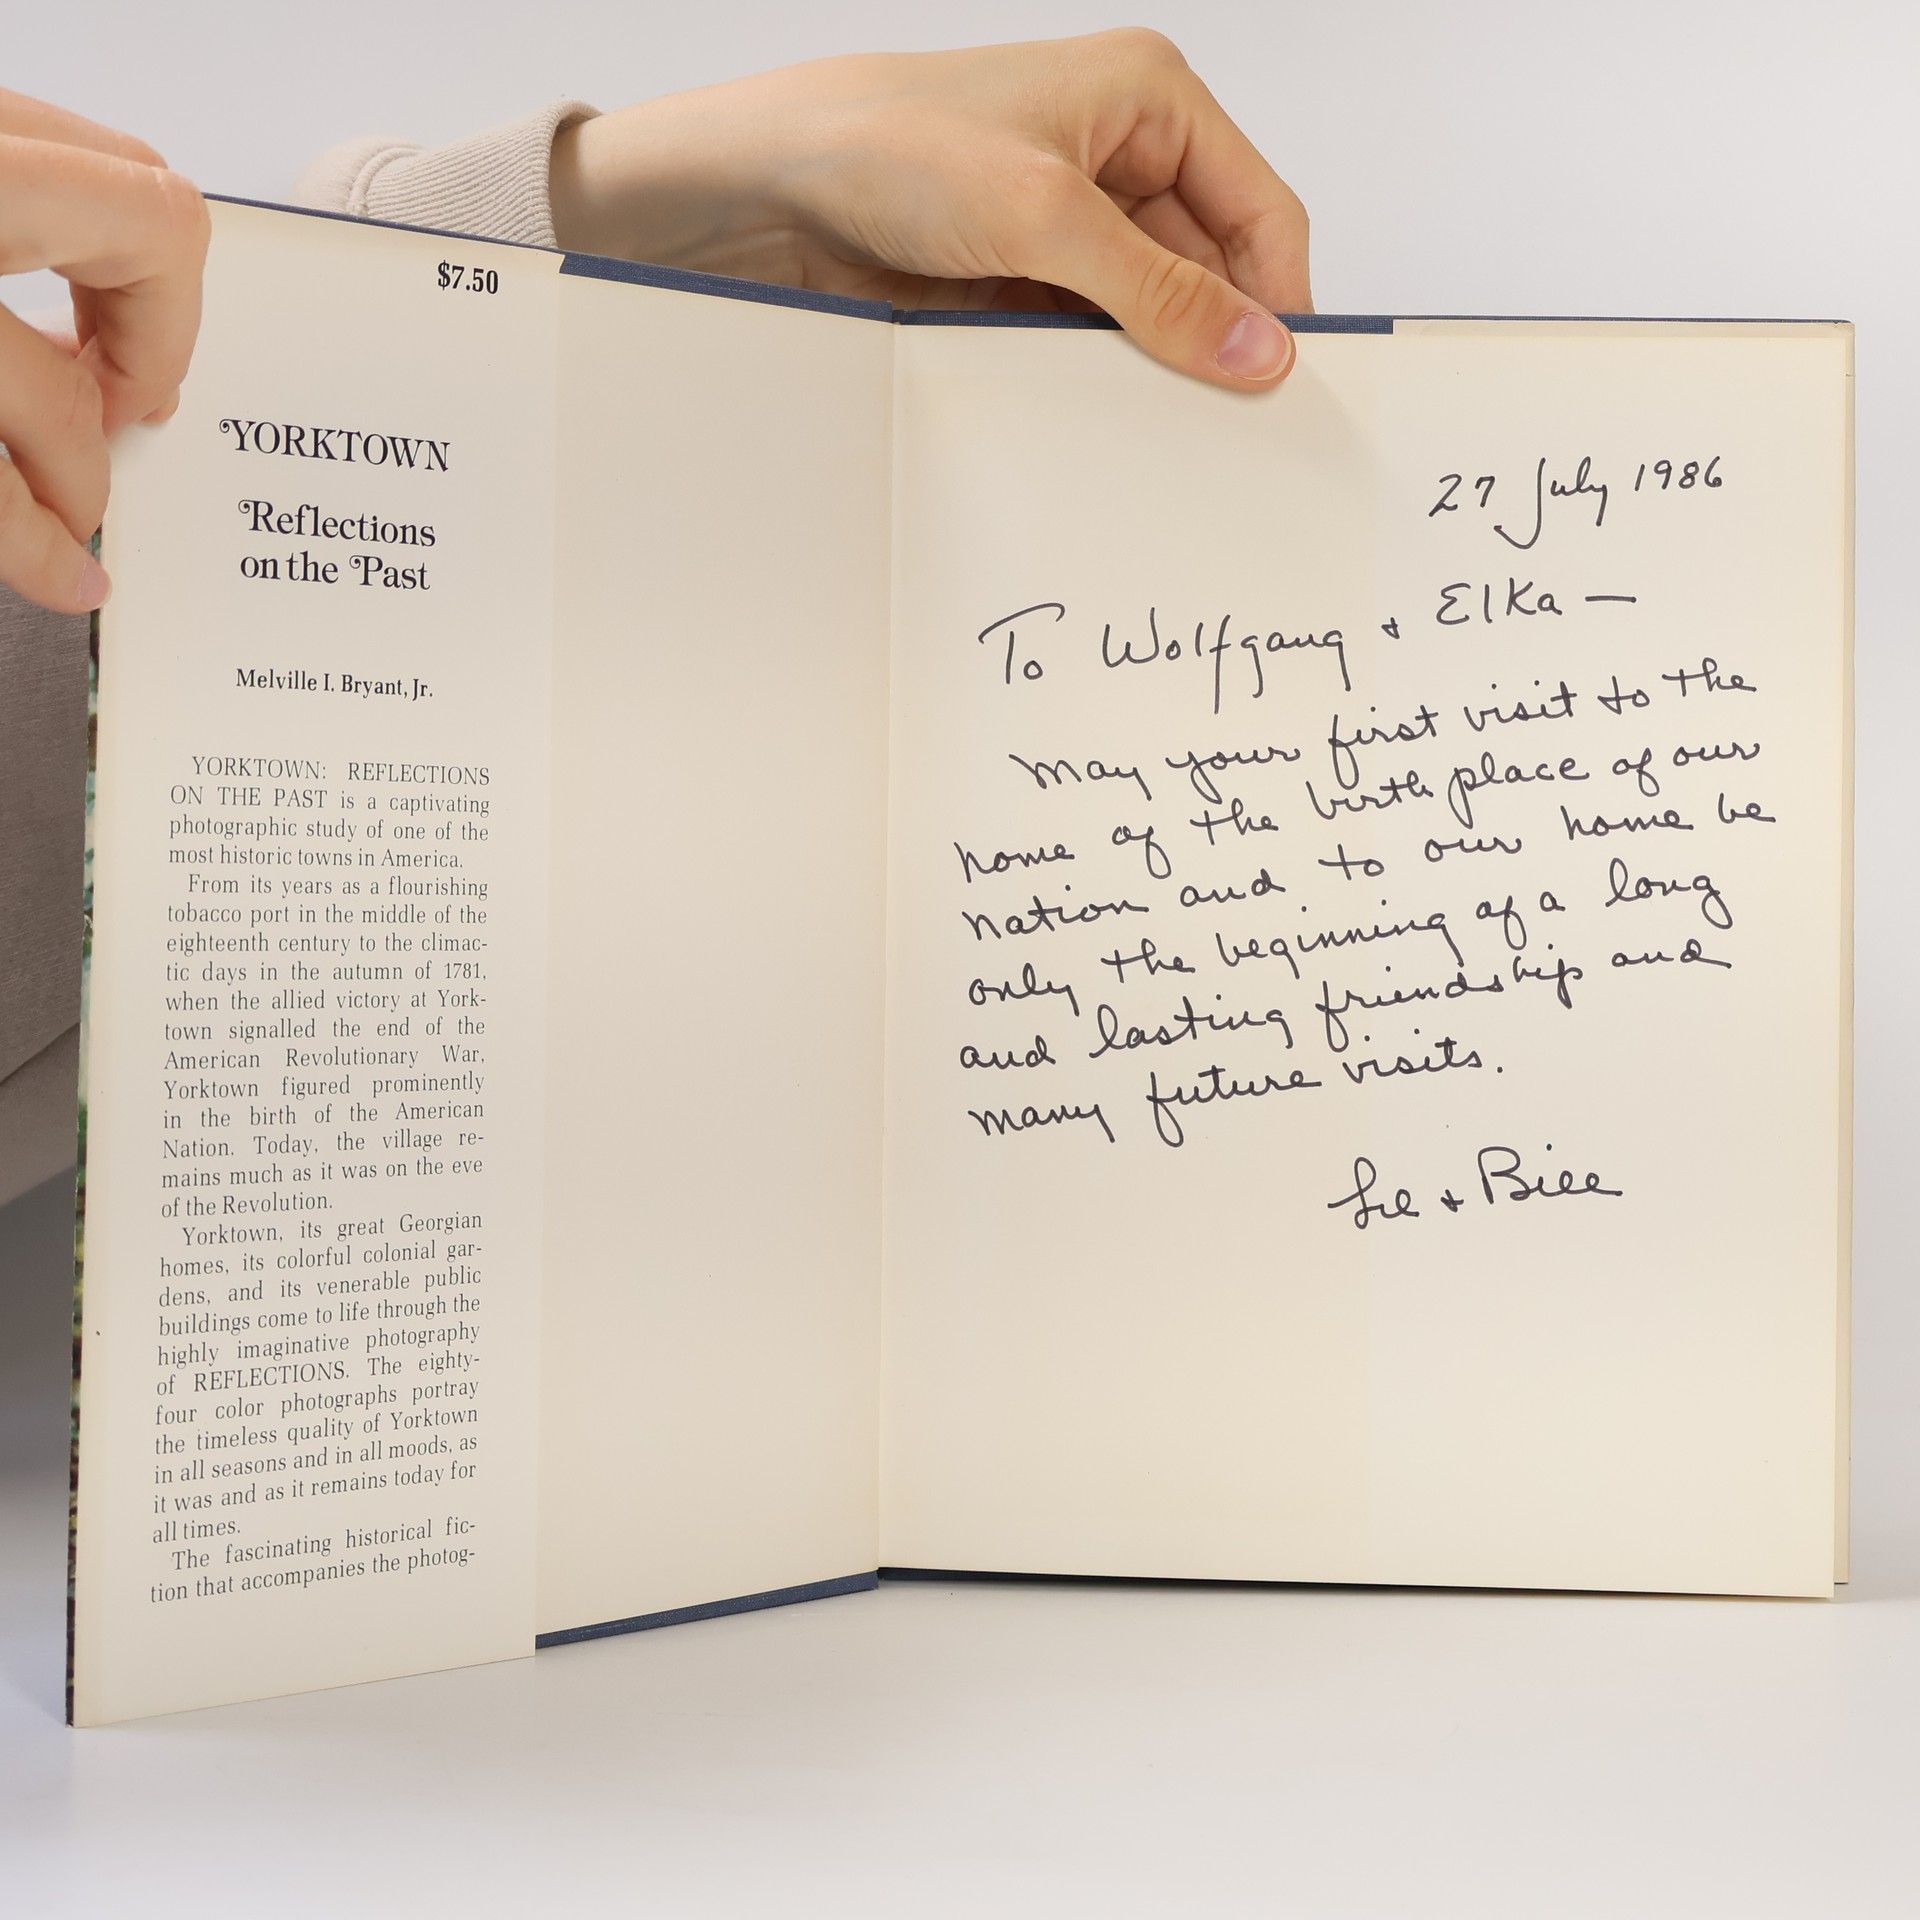 $7.50
YORKTOWN
Reflections
on the Past
Melville I. Bryant, Jr.
YORKTOWN: REFLECTIONS
ON THE PAST is a captivating
photographic study of one of the
most historic towns in America.
From its years as a flourishing
tobacco port in the middle of the
eighteenth century to the climac-
tic days in the autumn of 1781,
when the allied victory at York-
town signalled the end of the
American Revolutionary War,
Yorktown figured prominently
in the birth of the American
Nation. Today, the village re-
mains much as it was on the eve
of the Revolution.
Yorktown, its great Georgian
homes, its colorful colonial gar-
dens, and its venerable public
buildings come to life through the
highly imaginative photography
of REFLECTIONS. The eighty-
four color photographs portray
the timeless quality of Yorktown
in all seasons and in all moods, as
it was and as it remains today for
all times.
The fascinating historical fic-
tion that accompanies the photog-
27 July 1986
To Wolfgang + Elka —
May your first visit to the
home of the birth place of our
nation and to our home be
only the beginning of a long
and lasting friendship and
many future visits.
+ Bill